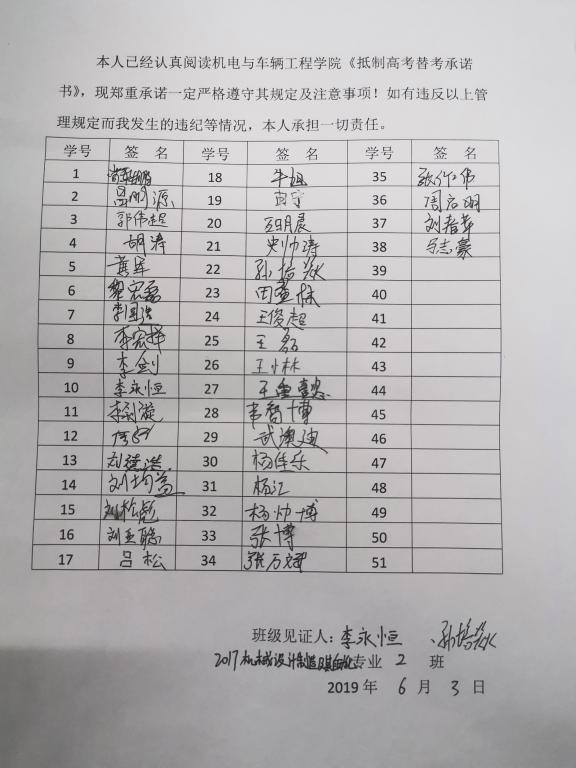 本人已经认真阅读机电与车辆工程学院《抵制高考替考承诺
书》，现郑重承诺一定严格遵守其规定及注意事项！如有违反以上管
理规定而我发生的违纪等情况，本人承担一切责任。
学号 签 名 学号 签 名 学号 签 名
1 18 牛旭 35 张作伟
2 源 19 白宁 36 周启明
3 郭伟超 20 晨 37 刘春苹
4 胡涛 21 史帅涛 38 马志豪
5 黄军 22 孙培焱 39
6 黎宏磊 23 田董林 40
7 李国浩 24 王俊超 41
8 李宏择 25 王磊 42
9 李剑 26 王小林 43
10 李永恒 27 王 44
11 28 韦智博 45
12 29 武澳迪 46
13 刘德浩 30 杨佳乐 47
14 刘均益 31 杨汇 48
15 刘松彪 32 杨帅博 49
16 刘亚聪 33 张博 50
17 吕松 34 张万斌 51
班级见证人：李永恒 孙培焱
2017机械设计制造及其自动化专业 2 班
2019 年 6 月 3 日